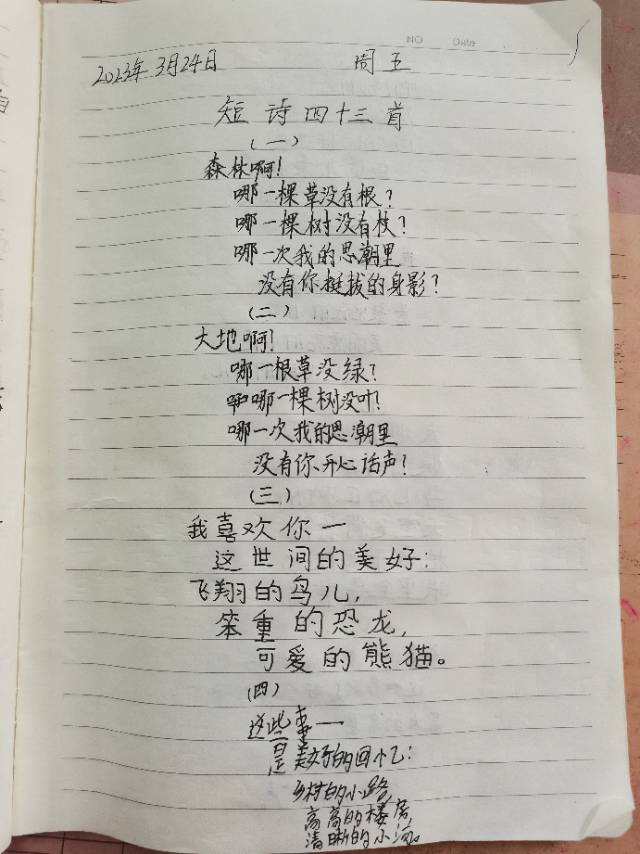 2023年3月24日 周五
短诗四十三首
(一)
森林啊!
哪一棵草没有根?
哪一棵树没有枝?
哪一次我的思潮里
没有你挺拔的身影?
(二)
大地啊!
哪一根草没绿?
哪一棵树没叶?
哪一次我的思潮里
没有你开心话声?
(三)
我喜欢你一
这世间的美好:
飞翔的鸟儿,
笨重的恐龙,
可爱的熊猫。
(四)
这些事——
是美好的回忆:
乡村的小路
高高的楼房,
清晰的小河。